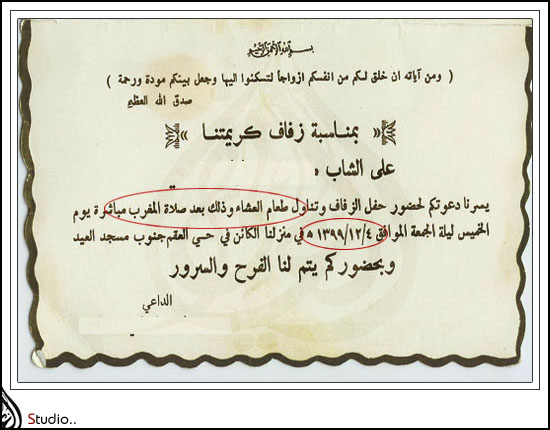 بسم الله الرحمن الرحيم
( ومن آياته ان خلق لكم من انفسكم ازواجاً لتسكنوا اليها وجعل بينكم مودة ورحمة )
صدق الله العظيم
بمناسبة زفاف كريمتنا
على الشاب
يسرنا دعوتكم لحضور حفل الزفاف وتناول طعام العشاء وذلك بعد صلاة المغرب مباشرة يوم
الخميس ليلة الجمعة الموافق ١٣٩٩/١٢/٤ ه في منزلنا الكائن في حي العقم جنوب مسجد العيد
وبحضوركم يتم لنا الفرح والسرور
الداعي
Studio..